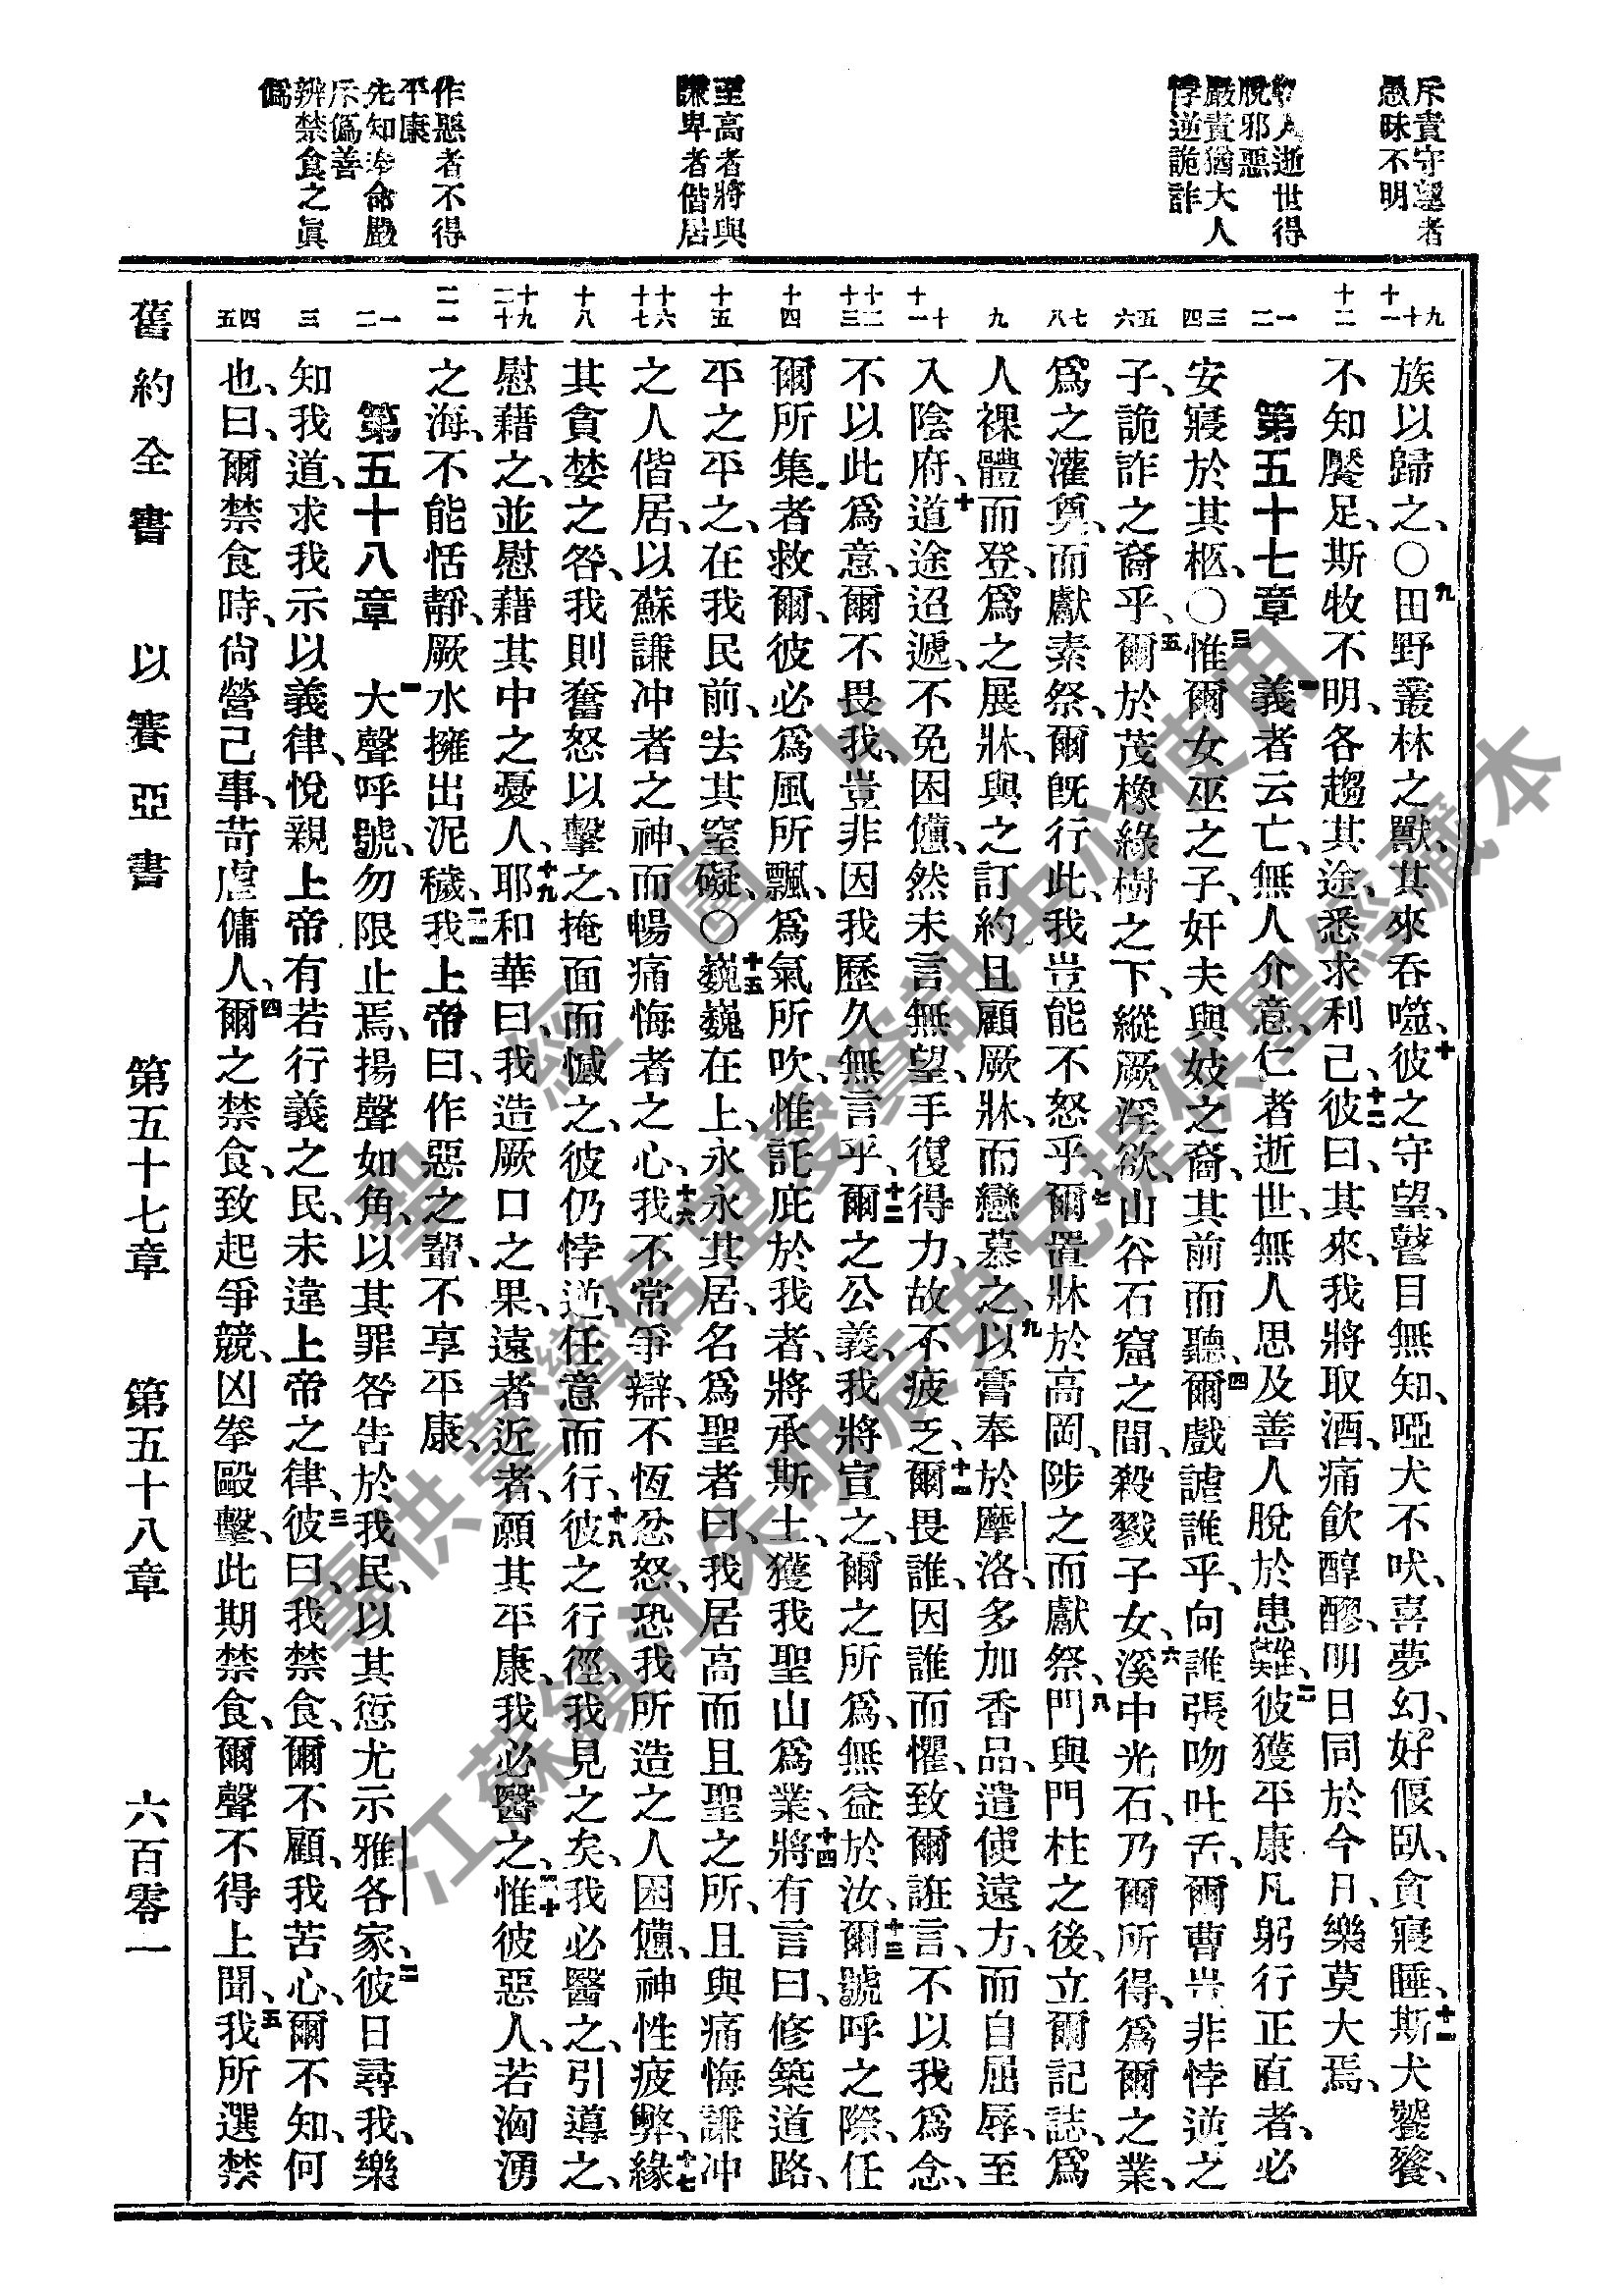 斥責守望者
愚昧不明
人逝世得
脫邪惡
嚴責猶大人
悖逆詭詐
至高者將與
謙卑者偕居
作惡者不得
平康
先知奉命嚴
斥僞善
辨禁食之眞
僞
九 十 十一
十二
一 二
三 四
五 六
七 八
九
十 十一
十二 十三
十四
十五
十六 十七
十八
十九 二十
二一
一 二
三
四 五
族以歸之、○九田野叢林之獸、其來吞噬、十彼之守望、瞽目無知、啞犬不吠、喜夢幻、好偃臥、貪寢睡、十一斯犬饕餮、
不知饜足、斯牧不明、各趨其途、悉求利己、十二彼曰、其來、我將取酒、痛飲醇醪、明日同於今日、樂莫大焉、
第五十七章 一義者云亡、無人介意、仁者逝世、無人思及善人脫於患難、二彼獲平康、凡躬行正直者、必
安寢於其柩、○三惟爾女巫之子、奸夫與妓之裔、其前而聽、四爾戲謔誰乎、向誰張吻吐舌、爾曹豈非悖逆之
子、詭詐之裔乎、五爾於茂橡綠樹之下、縱厥淫欲、山谷石窟之間、殺戮子女、六溪中光石、乃爾所得、爲爾之業、
爲之灌奠、而獻素祭、爾旣行此、我豈能不怒乎、七爾置牀於高岡、陟之而獻祭、八門與門柱之後、立爾記誌、爲
人裸體而登、爲之展牀、與之訂約、且顧厥牀、而戀慕之、九以膏奉於摩洛、多加香品、遣使遠方、而自屈辱、至
入陰府、十道途迢遞、不免困憊、然未言無望、手復得力、故不疲乏、十一爾畏誰、因誰而懼、致爾誑言、不以我爲念、
不以此爲意、爾不畏我、豈非因我歷久無言乎、十二爾之公義、我將宣之、爾之所爲、無益於汝、十三爾號呼之際、任
爾所集者救爾、彼必爲風所飄、爲氣所吹、惟託庇於我者、將承斯土、獲我聖山爲業、十四將有言曰、修築道路、
平之平之、在我民前、去其窒礙、○十五巍巍在上、永永其居、名爲聖者曰、我居高而且聖之所、且與痛悔謙冲
之人偕居、以蘇謙冲者之神、而暢痛悔者之心、十六我不常爭辯、不恆忿怒、恐我所造之人困憊、神性疲弊、十七緣
其貪婪之咎、我則奮怒以擊之、掩面而憾之、彼仍悖逆、任意而行、十八彼之行徑、我見之矣、我必醫之、引導之、
慰藉之、並慰藉其中之憂人、十九耶和華曰、我造厥口之果、遠者近者、願其平康、我必醫之、二十惟彼惡人、若洶湧
之海、不能恬靜、厥水擁出泥穢、二一我上帝曰、作惡之輩、不享平康、
第五十八章 一大聲呼號、勿限止焉、揚聲如角、以其罪咎告於我民、以其愆尤示雅各家、二彼日尋我、樂
知我道、求我示以義律、悅親上帝、有若行義之民、未違上帝之律、三彼曰、我禁食、爾不顧、我苦心、爾不知、何
也、曰、爾禁食時、尙營己事、苛虐傭人、四爾之禁食、致起爭競、凶拳毆擊、此期禁食、爾聲不得上聞、五我所選禁
舊約全書 以賽亞書 第五十七章 第五十八章 六百零一
聖經圖片
專供臺灣信望愛資訊中心使用
江蘇鎮江朱明辰弟兄提供聖經藏本